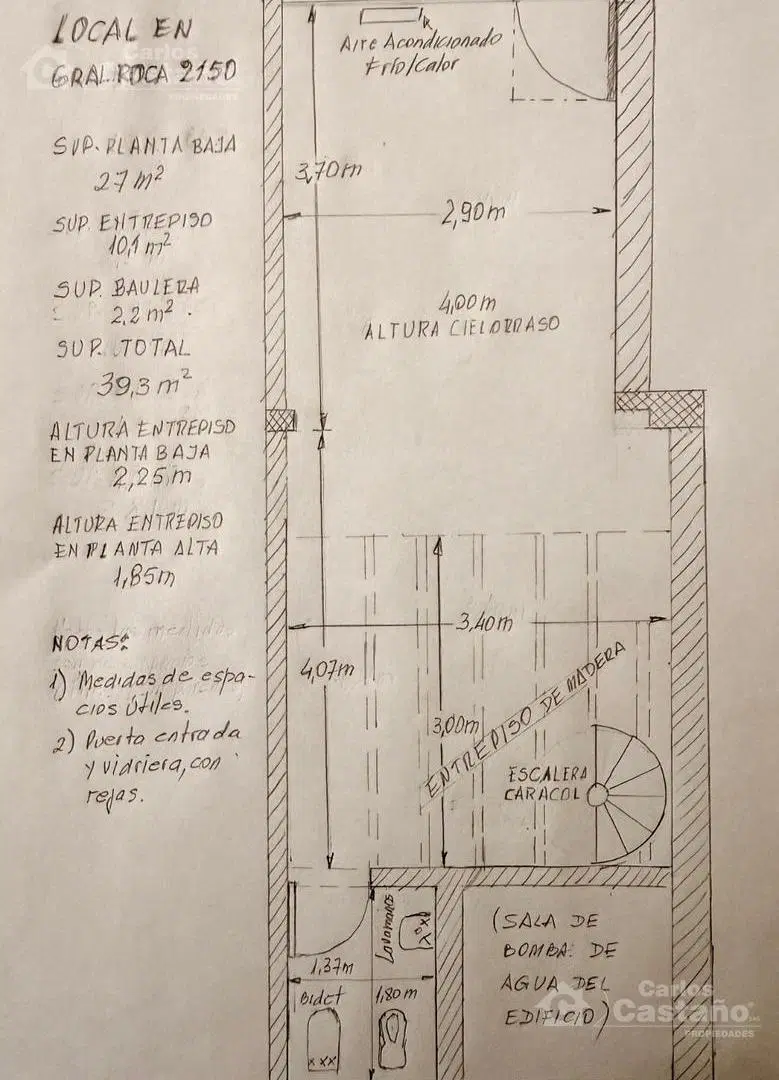 LOCAL EN
GRAL. ROCA 2150
SUP. PLANTA BAJA
27 m²
SUP. ENTREPISO
10,1 m²
SUP. BAULERA
2,2 m².
SUP. TOTAL
39,3 m²
ALTURA ENTREPISO
EN PLANTA BAJA
2,25 m
ALTURA ENTREPISO
EN PLANTA ALTA
1,85m
NOTAS:
1) Medidas de espa-
cios útiles.
2) Puerta entrada
y vidriera, con
rejas.
Aire Acondicionado
Frío/Calor
3,70m
2,90m
4,00m
ALTURA CIELORRASO
3,40m
4,07m
3,00m
ENTREPISO DE MADERA
ESCALERA
CARACOL
Lavamanos
1,37m
Bidet
1,80m
(SALA DE
BOMBA DE
AGUA DEL
EDIFICIO)
Carlos
Castaño
PROPIEDADES
Carlos
PROPIEDADES